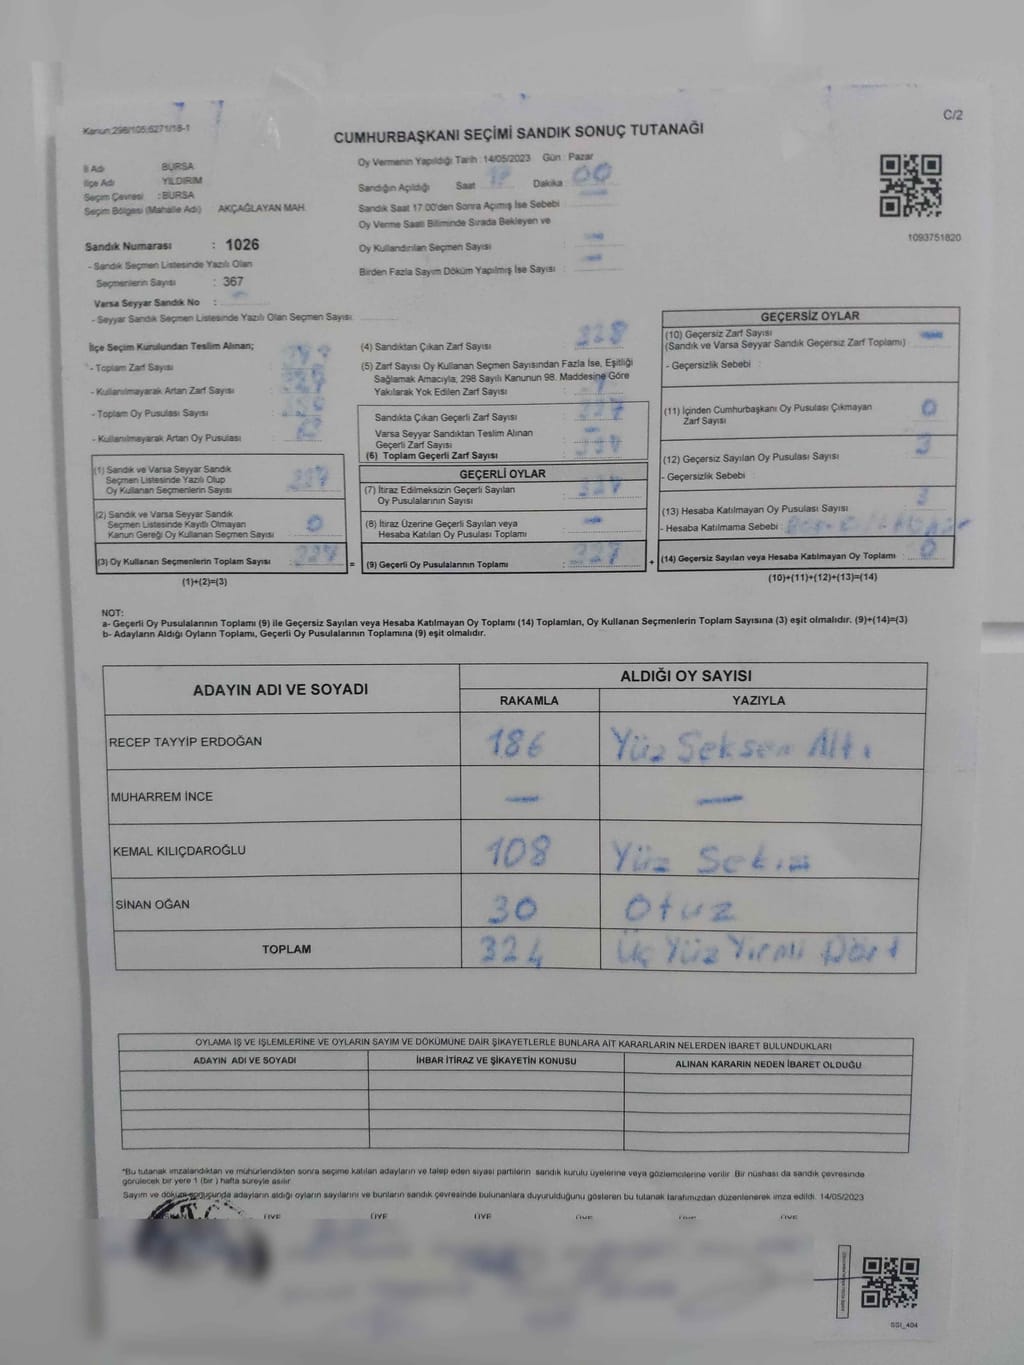 Kanun:298/105;6271/18-1
C/2
CUMHURBAŞKANI SEÇİMİ SANDIK SONUÇ TUTANAĞI
İl Adı BURSA
İlçe Adı YILDIRIM
Seçim Çevresi : BURSA
Seçim Bölgesi (Mahalle Adı) AKÇAĞLAYAN MAH.
Sandık Numarası : 1026
- Sandık Seçmen Listesinde Yazılı Olan
Seçmenlerin Sayısı : 367
Varsa Seyyar Sandık No :
- Seyyar Sandık Seçmen Listesinde Yazılı Olan Seçmen Sayısı:
Oy Vermenin Yapıldığı Tarih : 14/05/2023 Gün : Pazar
Sandığın Açıldığı Saat Dakika 00
Sandık Saat 17.00'den Sonra Açımış İse Sebebi
Oy Verme Saati Bitiminde Sırada Bekleyen ve
Oy Kullandırılan Seçmen Sayısı
Birden Fazla Sayım Döküm Yapılmış İse Sayısı :
1093751820
İlçe Seçim Kurulundan Teslim Alınan;
- Toplam Zarf Sayısı
- Kullanılmayarak Artan Zarf Sayısı
- Toplam Oy Pusulası Sayısı
- Kullanılmayarak Artan Oy Pusulası
(1) Sandık ve Varsa Seyyar Sandık
Seçmen Listesinde Yazılı Olup
Oy Kullanan Seçmenlerin Sayısı
(2) Sandık ve Varsa Seyyar Sandık
Seçmen Listesinde Kayıtlı Olmayan
Kanun Gereği Oy Kullanan Seçmen Sayısı 0
(3) Oy Kullanan Seçmenlerin Toplam Sayısı :
(1)+(2)=(3)
(4) Sandıktan Çıkan Zarf Sayısı 328
(5) Zarf Sayısı Oy Kullanan Seçmen Sayısından Fazla İse, Eşitliği
Sağlamak Amacıyla, 298 Sayılı Kanunun 98. Maddesine Göre
Yakılarak Yok Edilen Zarf Sayısı
Sandıkta Çıkan Geçerli Zarf Sayısı :
Varsa Seyyar Sandıktan Teslim Alınan
Geçerli Zarf Sayısı
(6) Toplam Geçerli Zarf Sayısı :
GEÇERLİ OYLAR
(7) İtiraz Edilmeksizin Geçerli Sayılan
Oy Pusulalarının Sayısı
(8) İtiraz Üzerine Geçerli Sayılan veya
Hesaba Katılan Oy Pusulası Toplamı
= (9) Geçerli Oy Pusulalarının Toplamı :
GEÇERSİZ OYLAR
(10) Geçersiz Zarf Sayısı
(Sandık ve Varsa Seyyar Sandık Geçersiz Zarf Toplamı) :
- Geçersizlik Sebebi :
(11) İçinden Cumhurbaşkanı Oy Pusulası Çıkmayan
Zarf Sayısı 0
(12) Geçersiz Sayılan Oy Pusulası Sayısı : 3
- Geçersizlik Sebebi :
(13) Hesaba Katılmayan Oy Pusulası Sayısı
- Hesaba Katılmama Sebebi :
+ (14) Geçersiz Sayılan veya Hesaba Katılmayan Oy Toplamı :
(10)+(11)+(12)+(13)=(14)
NOT:
a- Geçerli Oy Pusulalarının Toplamı (9) ile Geçersiz Sayılan veya Hesaba Katılmayan Oy Toplamı (14) Toplamları, Oy Kullanan Seçmenlerin Toplam Sayısına (3) eşit olmalıdır. (9)+(14)=(3)
b- Adayların Aldığı Oyların Toplamı, Geçerli Oy Pusulalarının Toplamına (9) eşit olmalıdır.
ADAYIN ADI VE SOYADI
ALDIĞI OY SAYISI
RAKAMLA YAZIYLA
RECEP TAYYİP ERDOĞAN 186 Yüz Seksen Altı
MUHARREM İNCE — —
KEMAL KILIÇDAROĞLU 108 Yüz Sekiz
SİNAN OĞAN 30 Otuz
TOPLAM 324 Üç Yüz Yirmi Dört
OYLAMA İŞ VE İŞLEMLERİNE VE OYLARIN SAYIM VE DÖKÜMÜNE DAİR ŞİKAYETLERLE BUNLARA AİT KARARLARIN NELERDEN İBARET BULUNDUKLARI
ADAYIN ADI VE SOYADI İHBAR İTİRAZ VE ŞİKAYETİN KONUSU ALINAN KARARIN NEDEN İBARET OLDUĞU
*Bu tutanak imzalandıktan ve mühürlendikten sonra seçime katılan adayların ve talep eden siyasi partilerin sandık kurulu üyelerine veya gözlemcilerine verilir. Bir nüshası da sandık çevresinde
görülecek bir yere 1 (bir ) hafta süreyle asılır.
Sayım ve döküm sonucunda adayların aldığı oyların sayılarını ve bunların sandık çevresinde bulunanlara duyurulduğunu gösteren bu tutanak tarafımızdan düzenlenerek imza edildi. 14/05/2023
ÜYE ÜYE ÜYE ÜYE ÜYE ÜYE
SSI_404